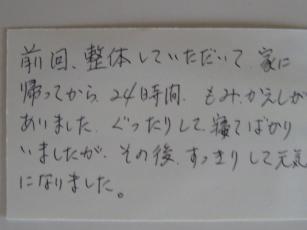 前回、整体していただいて、家に
帰ってから、24時間、もみかえしが
ありました。ぐったりして、寝てばかり
いましたが、その後、すっきりして元気
になりました。